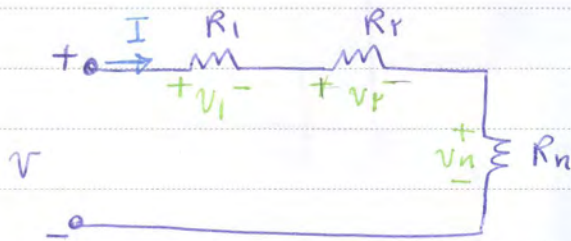 I R₁ R۲
+ + V₁ - + V۲ -
V + Vn - Rn
-